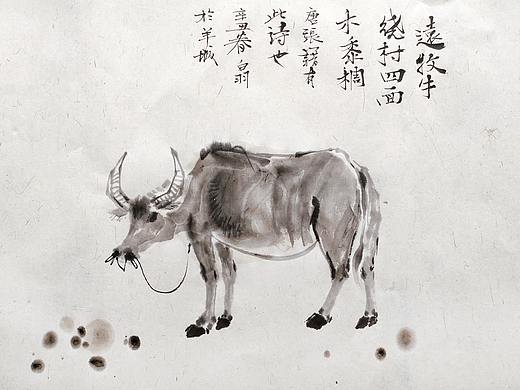 遠牧牛
繞村四面
禾黍稠
唐張籍有
此詩也
辛丑春翁
於羊城